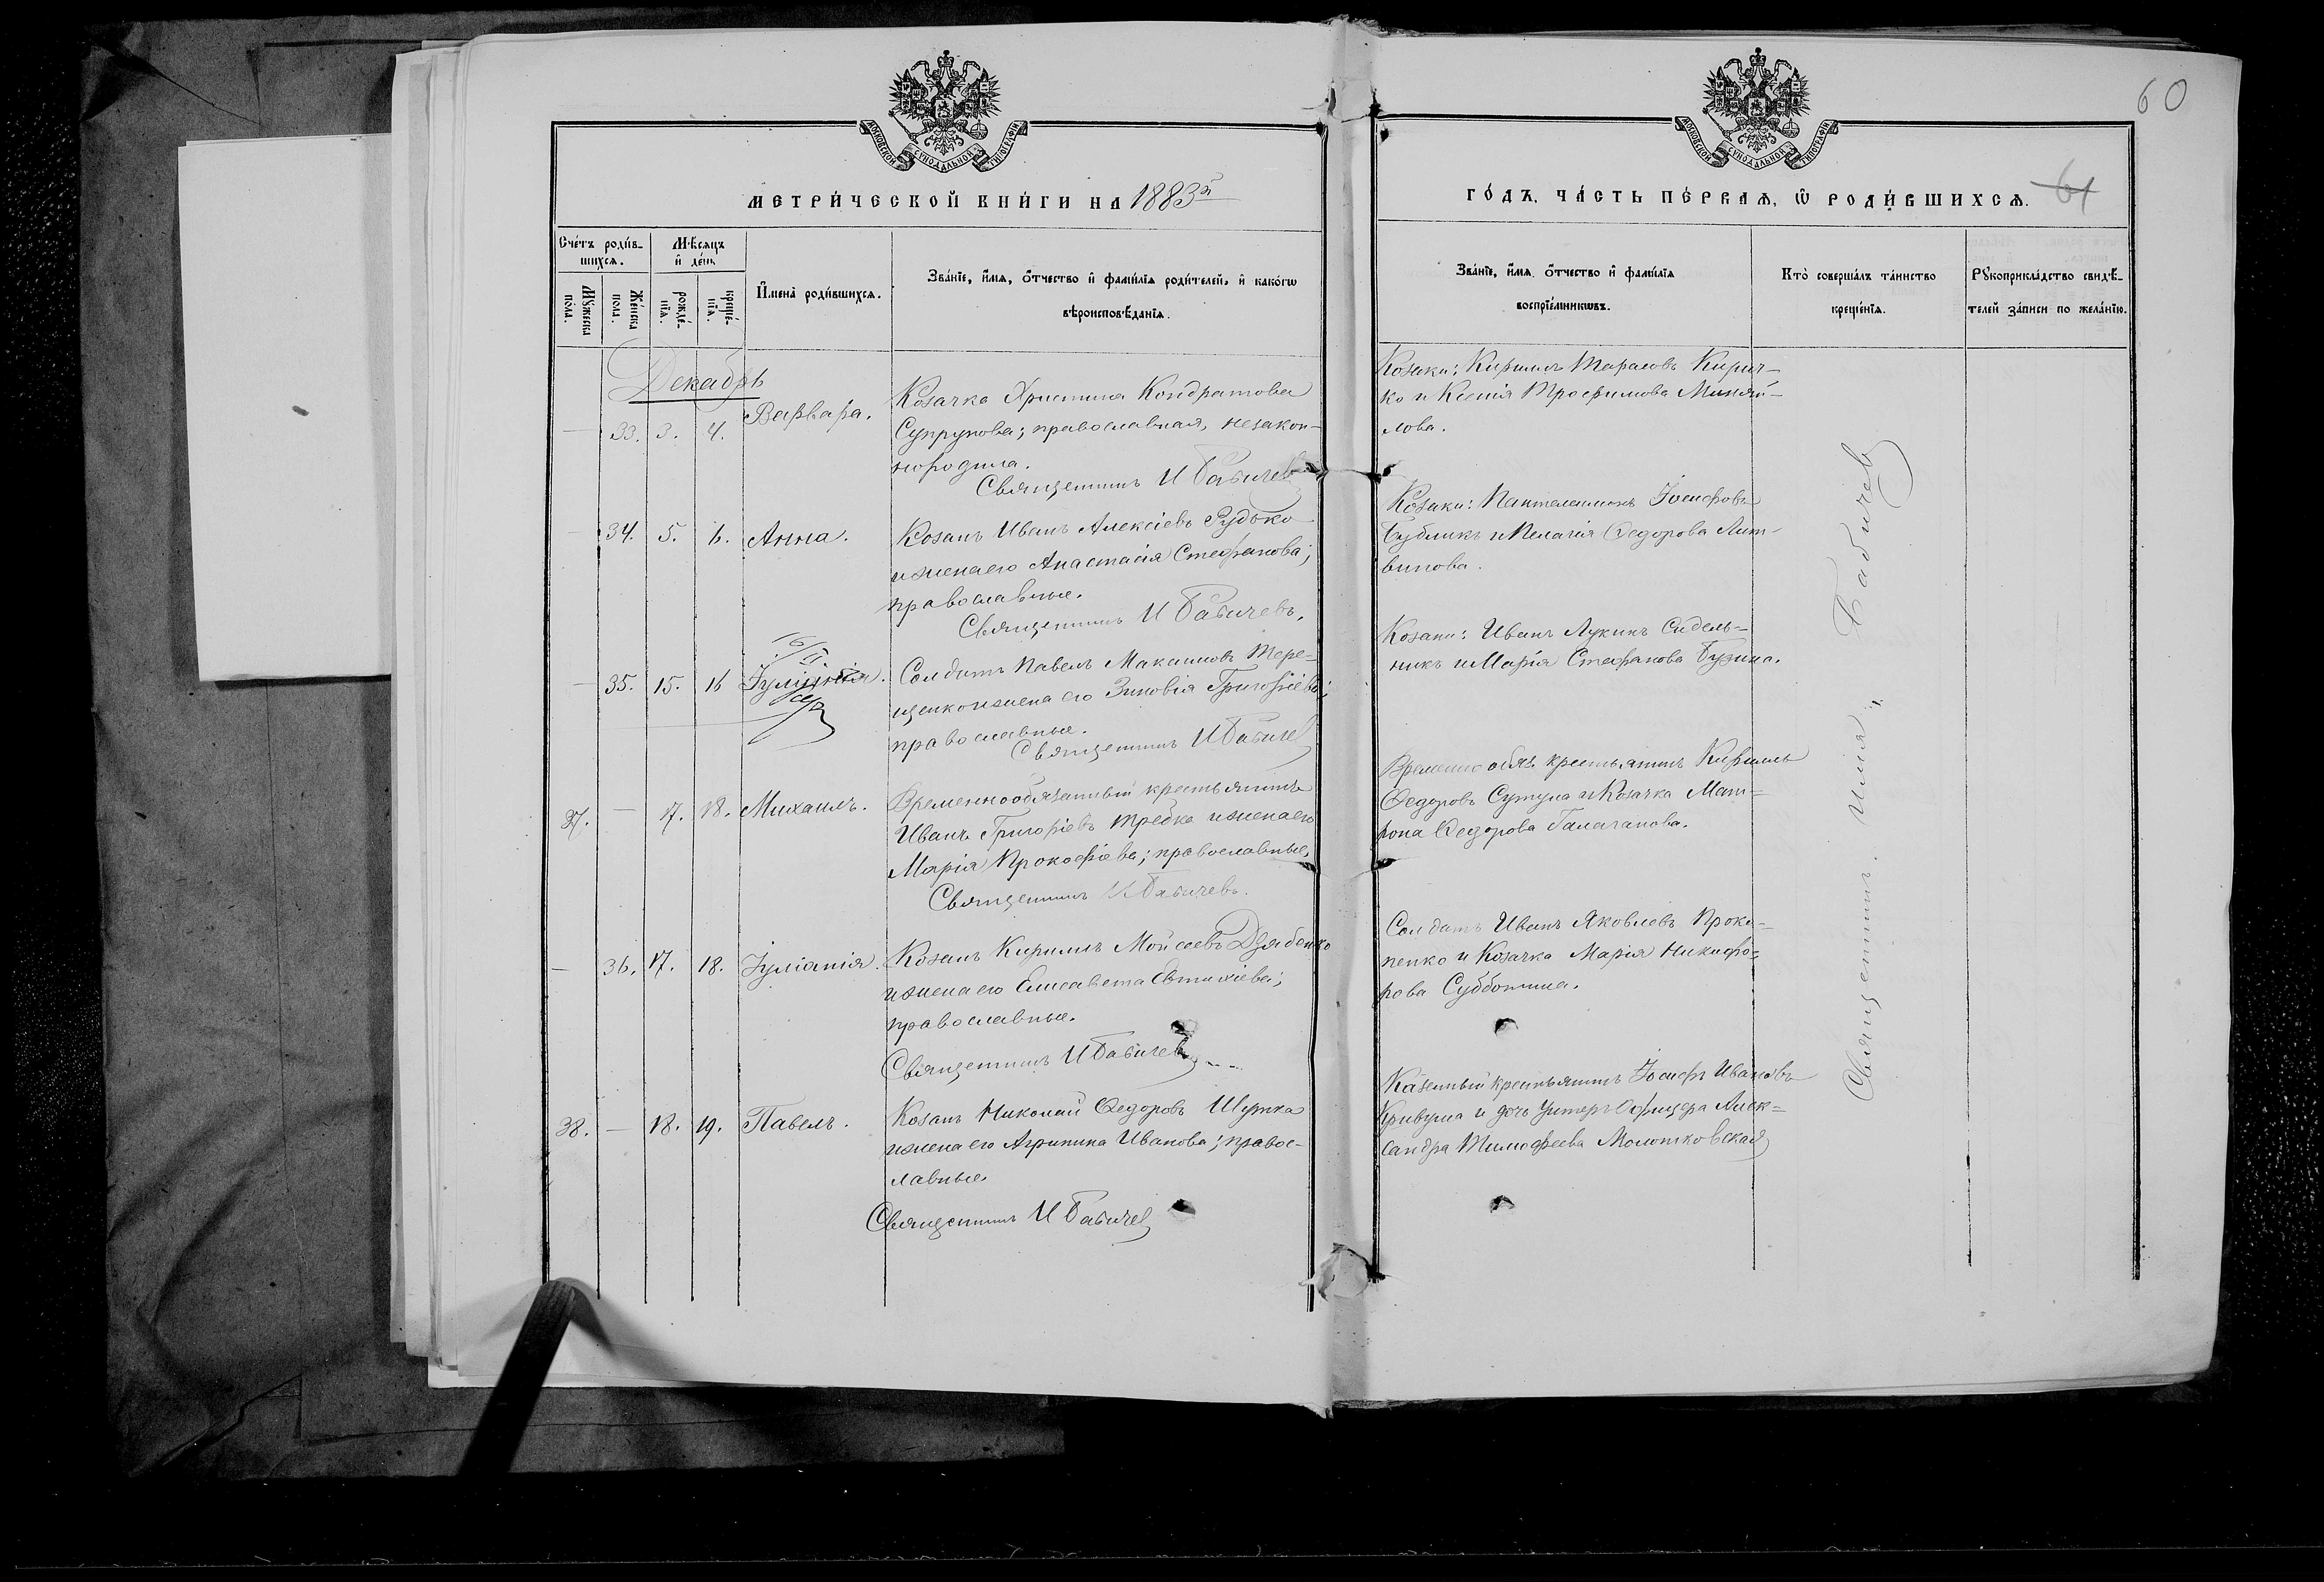 60
МОСКОВСКОЙ СѴНОДАЛЬНОЙ ТИПОГРАФІИ
МОСКОВСКОЙ СѴНОДАЛЬНОЙ ТИПОГРАФІИ
МЕТРИ́ЧЕСКОЙ КНИ́ГИ НА 1883й
ГО́ДЪ, ЧА́СТЬ ПЕ́РВАѦ, Ѿ РОДИ́ВШИХСѦ. 61
Сче́тъ роди́в-
шихсѧ.
Мѣсѧцъ
и҆ де́нь
Мꙋ́жеска
по́ла.
Же́нска
по́ла.
рожде́-
нїѧ.
креще́-
нїѧ.
И҆мена̀ роди́вшихсѧ.
Зва́нїе, и҆́мѧ, о҆́тчество и҆ фамѝлїѧ роди́телей, и҆ како́гѡ
вѣроисповѣ́данїѧ.
Зва́нїе, и҆́мѧ, о҆́тчество и҆ фамѝлїѧ
воспрїе́мникѡвъ.
Кто̀ соверша́лъ та́инство
креще́нїѧ.
Рꙋкоприкла́дство свидѣ́-
телей за́писи по жела́нїю.
Декабрь
— 33. 3. 4. Варвара.
Козачка Христина Кондратова
Супрунова; православная, незакон-
нородила.
Священникъ И Бабичев
Козаки: Кириллъ Тарасовъ Кирич-
ко и Ксенія Трофимова Миняй-
лова.
— 34. 5. 6. Анна.
Козакъ Иванъ Алексіевъ Рудько
и жена его Анастасія Стефанова;
православные.
Священникъ И Бабичевъ.
Козаки: Пантелеимонъ Іосифовъ
Бубликъ и Пелагія Федорова Лит-
винова.
— 35. 15. 16 Іуліанія.
Солдатъ Павелъ Максимовъ Тере-
щенко и жена его Зиновія Григоріева;
православные.
Священникъ И Бабичев
Козаки: Иванъ Лукинъ Сидель-
никъ и Марія Стефанова Бузина.
37. — 17. 18. Михаилъ.
Временнообязанный крестьянинъ
Иванъ Григоріевъ Требка и жена его
Марія Прокофіева; православные.
Священникъ И Бабичевъ.
Временно обяз. крестьянинъ Кириллъ
Федоровъ Сутула и Козачка Мат-
рона Федорова Галаганова.
— 36. 17. 18. Іуліанія.
Козакъ Кириллъ Мойсеевъ Дзябенко
и жена его Елисавета Евтихіева;
православные.
Священникъ И Бабичев
Солдатъ Иванъ Яковлевъ Проко-
пенко и Козачка Марія Никифо-
рова Субботина.
38. — 18. 19. Павелъ.
Козакъ Николай Федоровъ Шутка
и жена его Агрипина Иванова; правос-
лавные.
Священникъ И Бабичев
Казенный крестьянинъ Іосифъ Ивановъ
Кривуша и дочь Унтеръ Офицера Алек-
сандра Тимофеева Молотковская
Священникъ Илія Бабичев